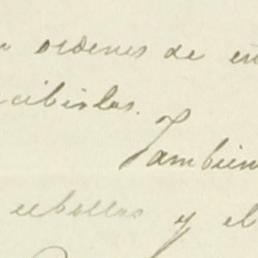 ordenes de en
cibirlas.
Tambien
cebollas y el